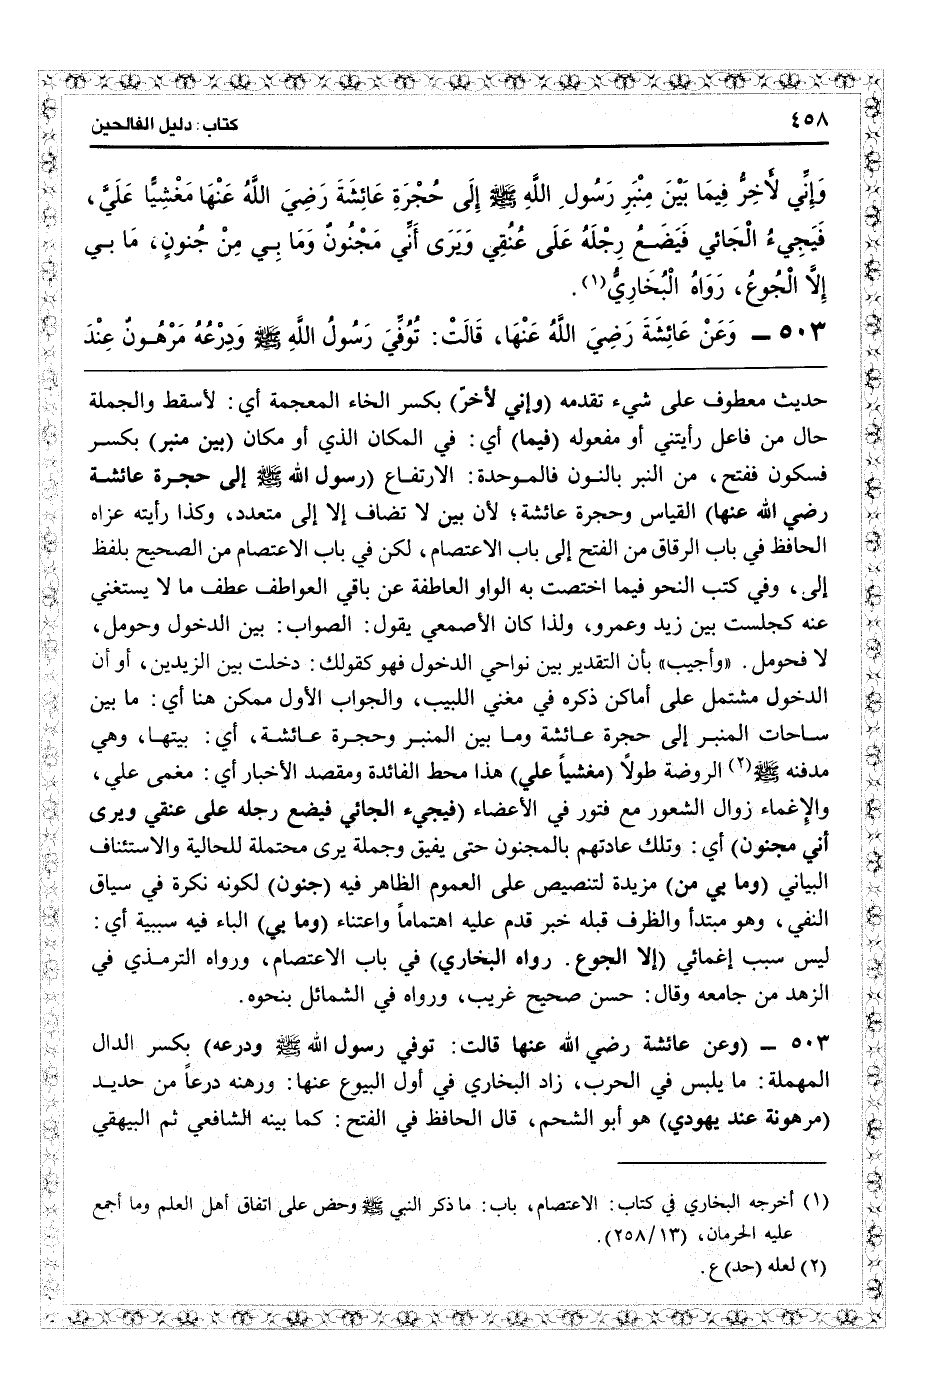 ٤٥٨
كتاب: دليل الفالحين
وَإِنِّي لَأَخِرُّ فِيمَا بَيْنَ مِنْبَرِ رَسُولِ اللَّهِ ﷺ إِلَى حُجْرَةِ عَائِشَةَ رَضِيَ اللَّهُ عَنْهَا مَغْشِيًّا عَلَيَّ،
فَيَجِيءُ الْجَائي فَيَضَعُ رِجْلَهُ عَلَى عُنُقِي وَيَرَى أَنِّي مَجْنُونٌ وَمَا بِي مِنْ جُنونٍ، مَا بِي
إِلَّا الْجُوعُ، رَوَاهُ الْبُخَارِيُّ(١).
٥٠٣ - وَعَنْ عَائِشَةَ رَضِيَ اللَّهُ عَنْهَا، قَالَتْ: تُوُفِّيَ رَسُولُ اللَّهِ ﷺ وَدِرْعُهُ مَرْهُونٌ عِنْدَ
حديث معطوف على شيء تقدمه (وإني لأخرّ) بكسر الخاء المعجمة أي: لأسقط والجملة
حال من فاعل رأيتني أو مفعوله (فيما) أي: في المكان الذي أو مكان (بين منبر) بكسر
فسكون ففتح، من النبر بالنون فالموحدة: الارتفاع (رسول الله ﷺ إلى حجرة عائشة
رضي الله عنها) القياس وحجرة عائشة؛ لأن بين لا تضاف إلا إلى متعدد، وكذا رأيته عزاه
الحافظ في باب الرقاق من الفتح إلى باب الاعتصام، لكن في باب الاعتصام من الصحيح بلفظ
إلى، وفي كتب النحو فيما اختصت به الواو العاطفة عن باقي العواطف عطف ما لا يستغني
عنه كجلست بين زيد وعمرو، ولذا كان الأصمعي يقول: الصواب: بين الدخول وحومل،
لا فحومل. «وأجيب» بأن التقدير بين نواحي الدخول فهو كقولك: دخلت بين الزيدين، أو أن
الدخول مشتمل على أماكن ذكره في مغني اللبيب، والجواب الأول ممكن هنا أي: ما بين
ساحات المنبر إلى حجرة عائشة وما بين المنبر وحجرة عائشة، أي: بيتها، وهي
مدفنه ﷺ(٢) الروضة طولاً (مغشياً علي) هذا محط الفائدة ومقصد الأخبار أي: مغمى علي،
والإغماء زوال الشعور مع فتور في الأعضاء (فيجيء الجائي فيضع رجله على عنقي ويرى
أني مجنون) أي: وتلك عادتهم بالمجنون حتى يفيق وجملة يرى محتملة للحالية والاستئناف
البياني (وما بي من) مزيدة لتنصيص على العموم الظاهر فيه (جنون) لكونه نكرة في سياق
النفي، وهو مبتدأ والظرف قبله خبر قدم عليه اهتماماً واعتناء (وما بي) الباء فيه سببية أي:
ليس سبب إغمائي (إلا الجوع. رواه البخاري) في باب الاعتصام، ورواه الترمذي في
الزهد من جامعه وقال: حسن صحيح غريب، ورواه في الشمائل بنحوه.
٥٠٣ - (وعن عائشة رضي الله عنها قالت: توفي رسول الله ﷺ ودرعه) بكسر الدال
المهملة: ما يلبس في الحرب، زاد البخاري في أول البيوع عنها: ورهنه درعاً من حديد
(مرهونة عند يهودي) هو أبو الشحم، قال الحافظ في الفتح: كما بينه الشافعي ثم البيهقي
(١) أخرجه البخاري في كتاب: الاعتصام، باب: ما ذكر النبي ﷺ وحض على اتفاق أهل العلم وما أجمع
عليه الحرمان، (٢٥٨/١٣).
(٢) لعله (حد) ع.